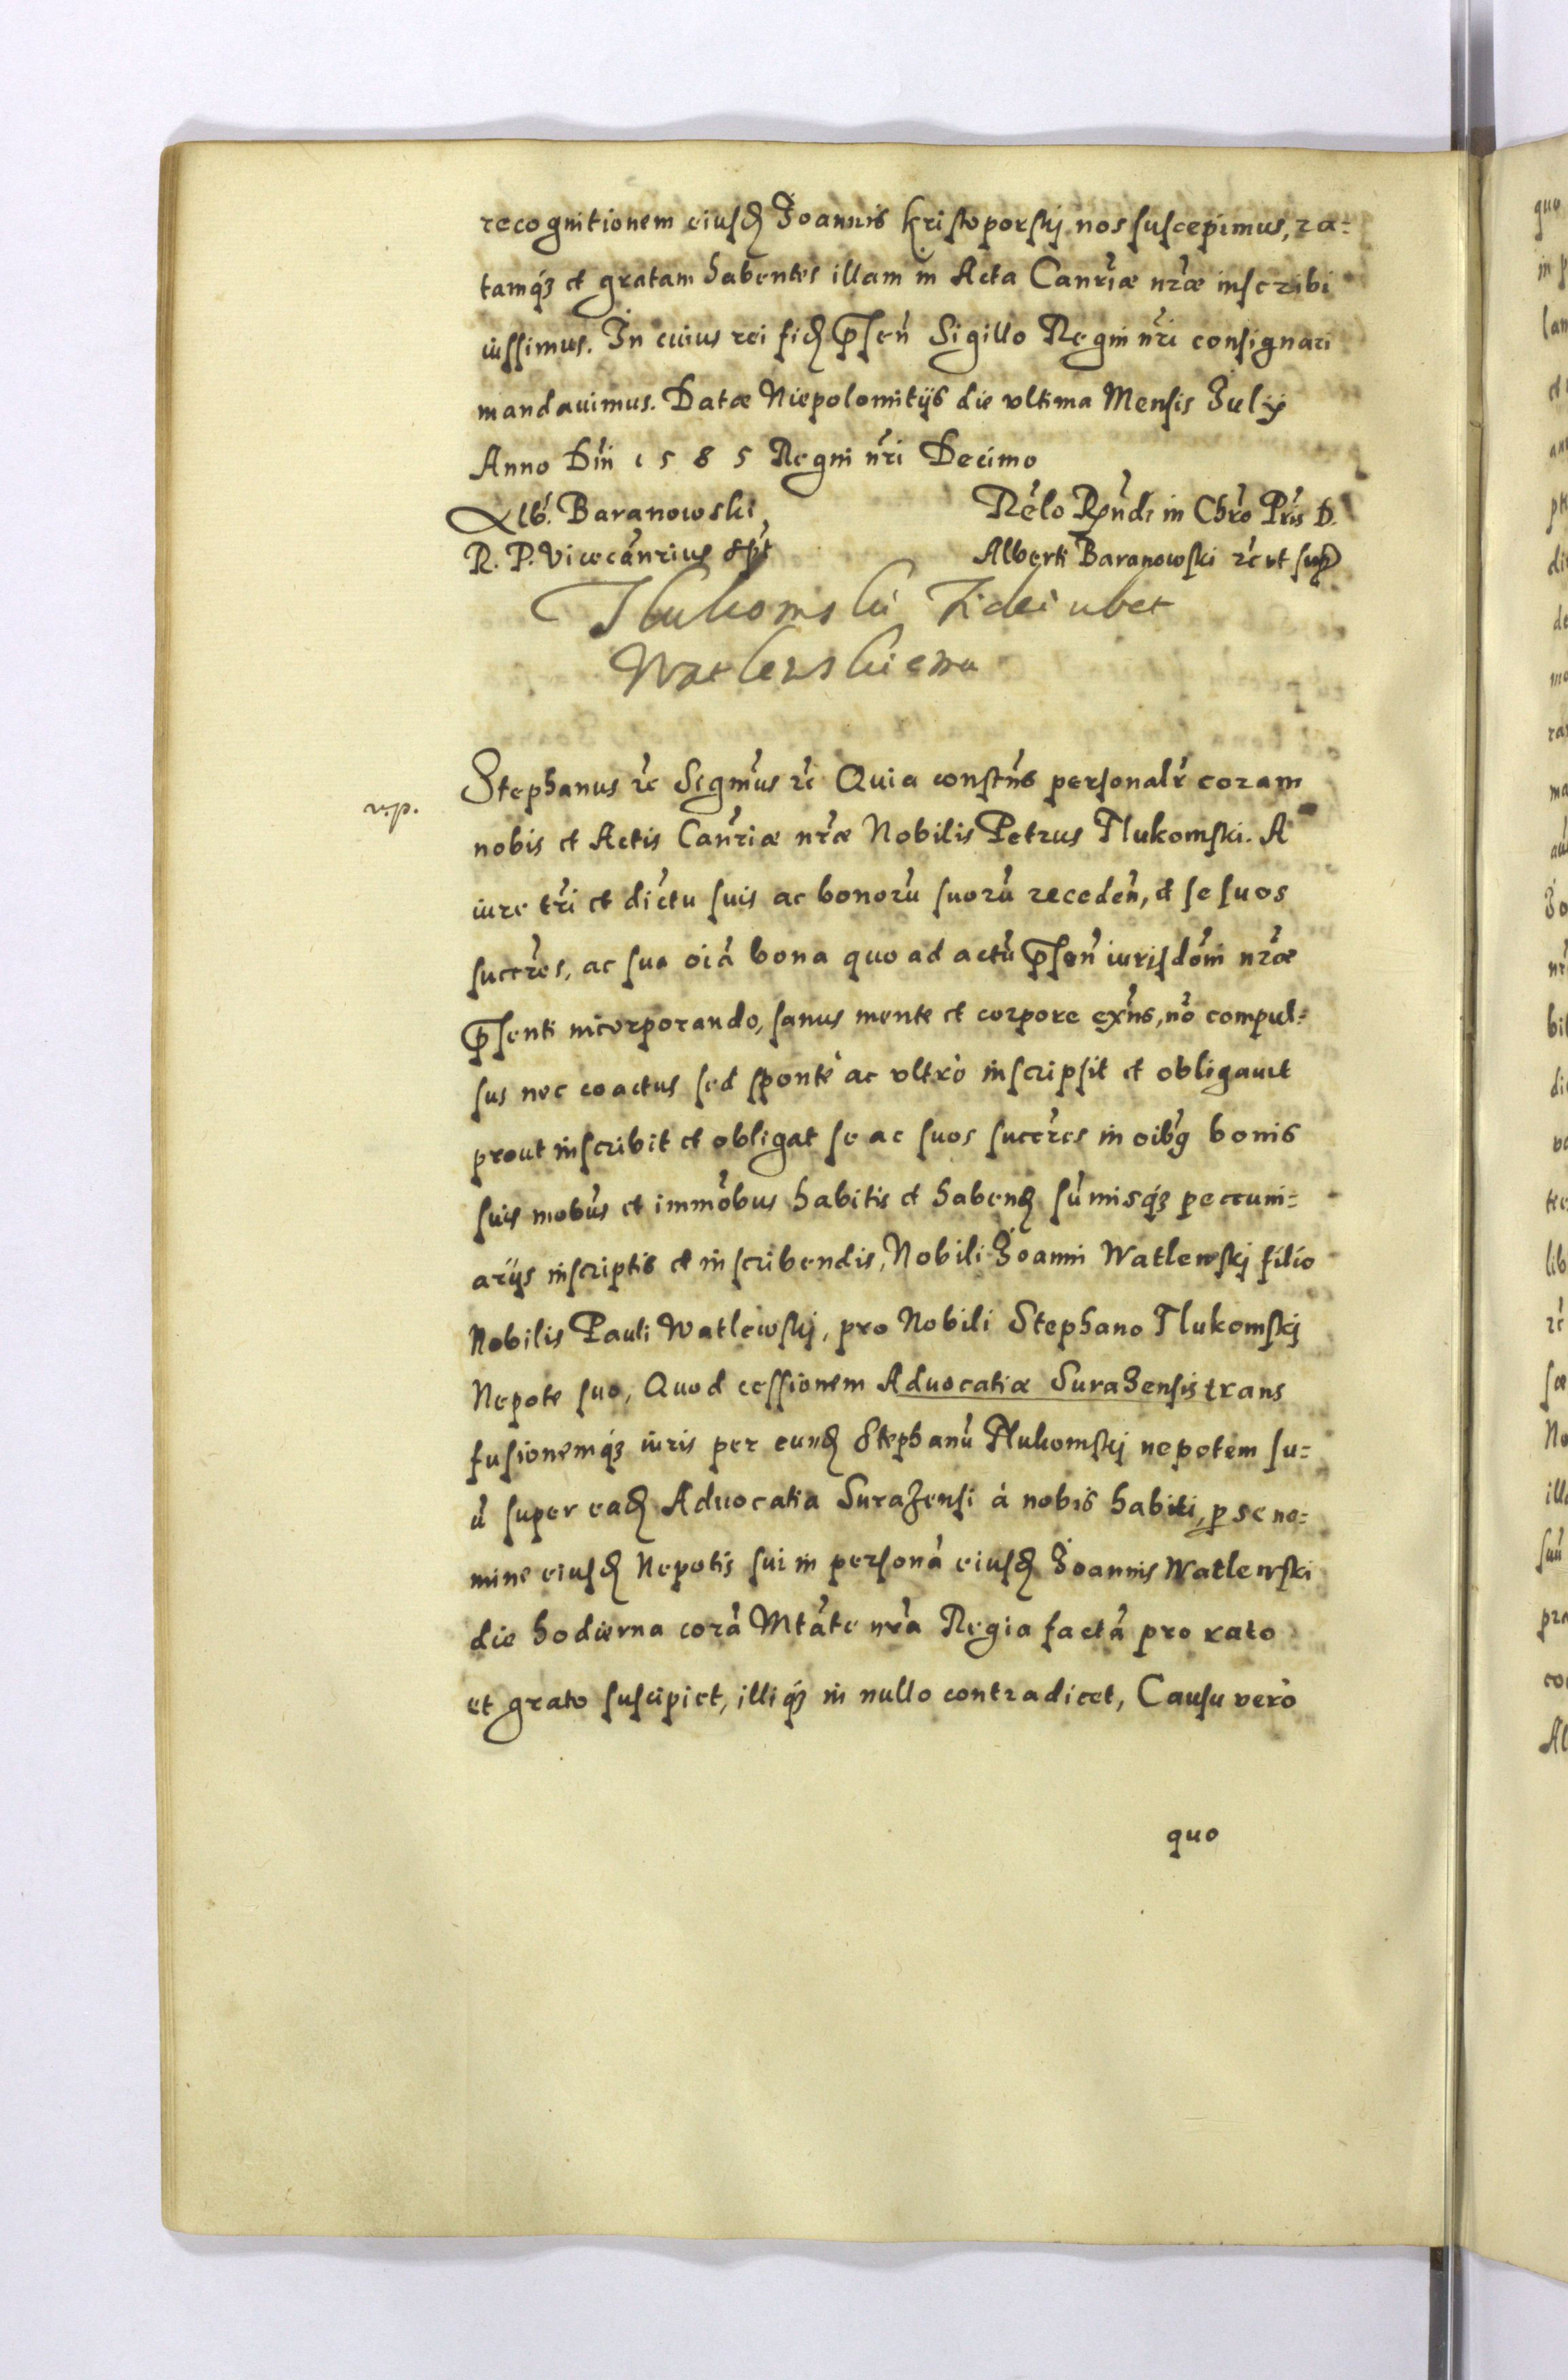 recognitionem eiusđ Joannis Kristoporskj nos suscepimus, ra=
tamq́ʒ et gratam habentes illam in Acta Canr̃iæ nr̃æ inscribi
iussimus. In cuius rei fidꝫ p̃sen̄ Sigillo Regni nr̃i consignari
mandauimus. Datæ Niepolomitijs die vltima Mensis Julij
Anno Dn̄i 1585 Regni nr̃i Decimo
Alb́. Baranowski
R. P. Vicecan̄rius sp̃t
Rēlo Rn̄di in Chr̃o Pr̃is D.
Alberti Baranowski rc̃ ut sup̃
Tlukomski Fideiubet
Watlewskiemu
Stephanus rc̃ Segmūs rc̃ Quia constn̄s personalr̃ coram
r.p.
nobis et Actis Can̄riæ nr̃æ Nobilis Petrus Tlukomski. A
iure tr̃i et dictu suis ac bonorū suorū receden̄, et se suos
succr̃es, ac sua oīa bona quo ad actū p̃sen̄ iurisdōni nr̃æ
p̃senti incorporando, sanus mente et corpore exn̄s, nō compul=
sus nec coactus sed spontè ac vltrò inscripsit et obligauit
prout inscribit et obligat se ac suos succr̃es in oibq̃ bonis
suis mobūs et immōbus habitis et habenđ sūmisq́ʒ pecuni=
arijs inscriptis et inscribendis, Nobili Joanni Watlewskj filio
Nobilis Pauli Watlewskj, pro Nobili Stephano Tlukomskj
Nepote suo, Quod cessionem Aduocatiæ Surazensis trans
fusionemq́ʒ iuris per eunđ Stephanū Tlukomskj nepotem su=
ū super eađ Aduocatia Surazensi à nobis habiti, p se no=
mine eiusđ Nepotis sui in personā eiusđ Joannis Watlewski
die hodierna corā Mtāte nr̃a Regia factā pro rato
et grato suscipiet, illiq́ʒ in nullo contradicet, Causu verò
quo